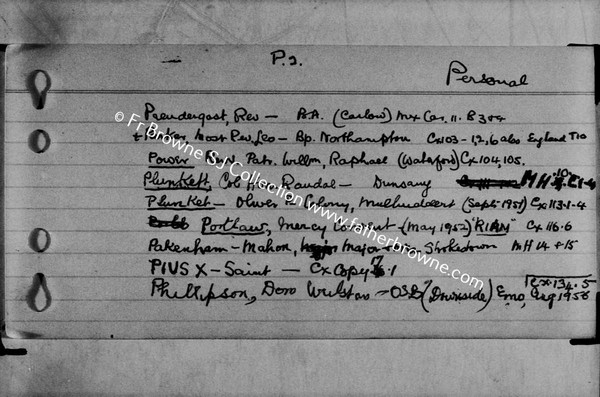 P.2.
Personal
Prendergast, Rev — P.A. (Carlow)
Parker, Most Rev, Leo — Bp. Northampton Cx103-1,2,6 also England T10
Power, Patr. Willm, Raphael (Waterford) Cx104,105.
Plunkett, Col Randal — Dunsany MH
Plunket — Oliver — Colony, Mulhuddart (Sept-1951) Cx113-1-4
Portlaw, Mercy Convent (May 1952) "RIAN" Cx 116.6
Pakenham-Mahon, Major — Strokestown MH 14 + 15
PIUS X — Saint — Cx Copy 7.1
Cx.134.5
Phillipson, Dom Wulstan — OSB (Downside) Emo, Aug 1956
© Fr Browne SJ Collection www.fatherbrowne.com